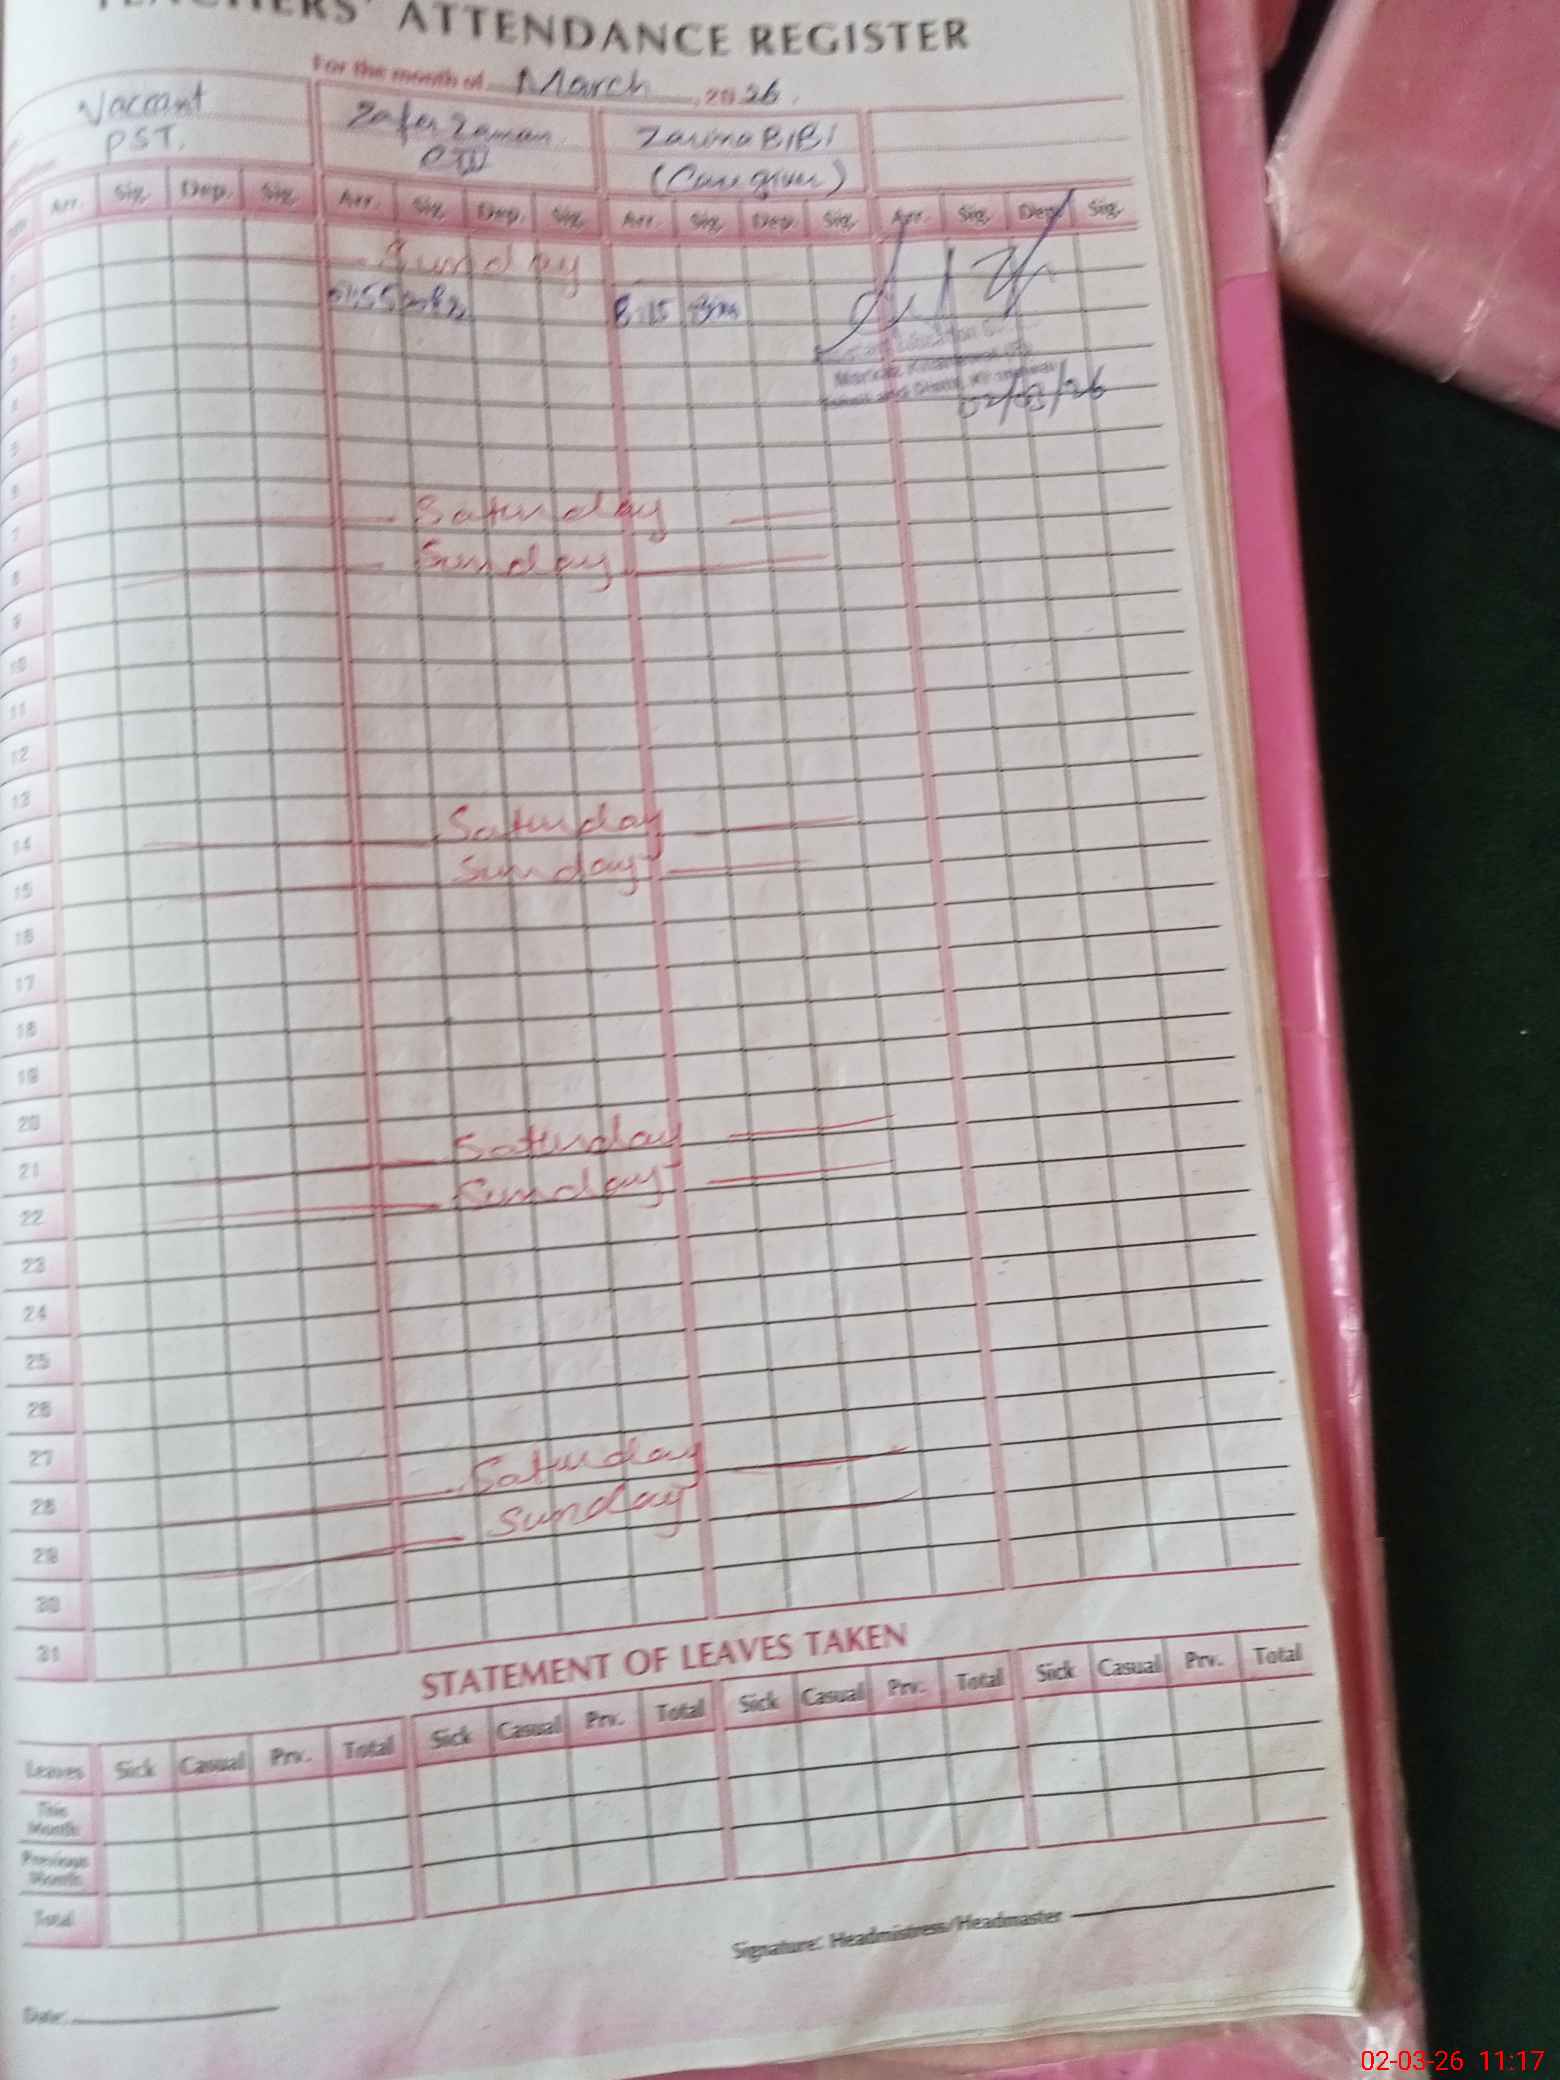 TEACHERS' ATTENDANCE REGISTER
For the month of March, 2026.
Vaccant Zafer Zaman Zarina BiBi
PST. (Care giver)
Arr. Sig. Dep. Sig. Arr. Sig. Dep. Sig. Arr. Sig. Dep. Sig. Arr. Sig. Dep. Sig.
1 Sunday
2 8:15
3
4
02/03/26
5
6
7 Saturday
8 Sunday
9
10
11
12
13
14 Saturday
15 Sunday
16
17
18
19
20
21 Saturday
22 Sunday
23
24
25
26
27
28 Saturday
29 Sunday
30
31
STATEMENT OF LEAVES TAKEN
Leaves Sick Casual Prv. Total Sick Casual Prv. Total Sick Casual Prv. Total Sick Casual Prv. Total
This Month
Previous Month
Total
Signature: Headmistress/Headmaster
Date:
02-03-26 11:17